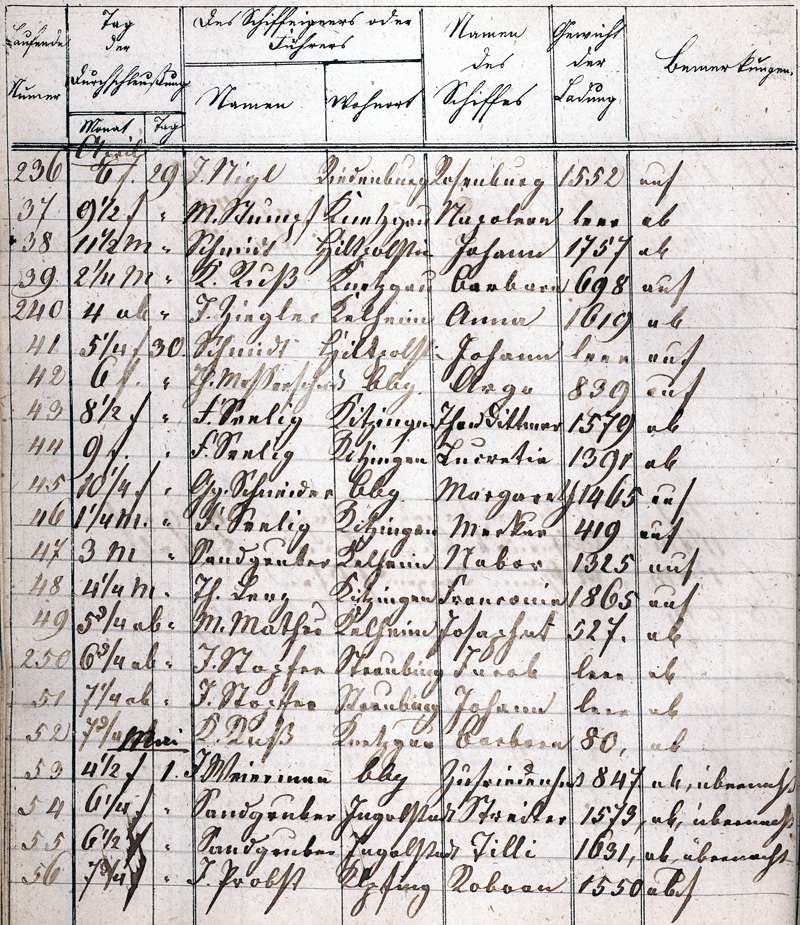 Laufende Numer
Tag der Durchschleußung
Monat Tag
Des Schiffeigners oder Führers
Namen
Wohnort
Namen des Schiffes
Gewicht der Ladung
Bemerkungen.
April
236 6 f. 29 J. Nigl Riedenburg Rosenburg 1552 auf
37 9½ f " M. Stumpf Knetzgau Napoleon leer ab
38 11½ M " Schmidt Hiltpolstein Johann 1757 ab
39 2¼ M " K. Ruß Knetzgau Barbara 698 auf
240 4 ab " J. Ziegler Kelheim Anna 1619 ab
41 5¼ f 30 Schmidt Hiltpolst. Johann leer auf
42 6 f. " Th. Messerschmid bbg. Argo 839 auf
43 8½ f " F. Seelig Kitzingen Theo Dittmar 1579 ab
44 9 f. " F. Seelig Kitzingen Lucretia 1391 ab
45 10¼ f " Gg. Schneider bbg Margareth 1465 auf
46 1¼ M. " F. Seelig Kitzingen Merkur 419 auf
47 3 M " Sandgruber Kelheim Nabor 1325 auf
48 4¼ M. Th. Kitzingen Franconia 1865 auf
49 5¾ ab " M. Mathes Kelheim Josaphat 527. ab
250 6¾ ab " J. Stopfer Straubing Jacob leer ab
51 7¼ ab " J. Stopfer Straubing Johann leer ab
52 7¾ K. Ruß Knetzgau Barbara 80, ab
Mai
53 4½ f 1. J Weierman bbg Zufriedenheit 847 ab, übernacht
54 6¼ f " Sandgruber Ingolstadt Streiter 1573, ab, übernacht
55 6½ f " Sandgruber Ingolstadt Tilli 1631, ab, übernacht
56 7¾ f " J. Probst Roboan 1550